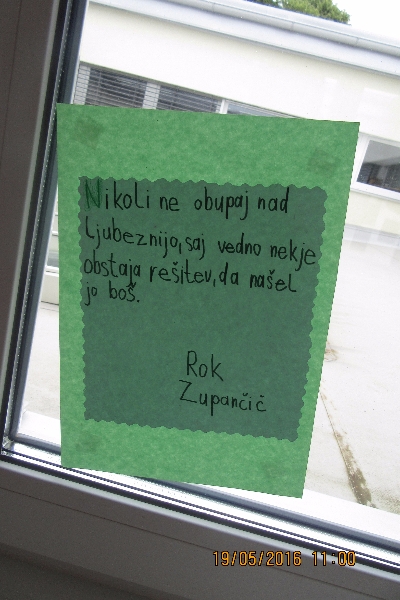 Nikoli ne obupaj nad
ljubeznijo, saj vedno nekje
obstaja rešitev, da našel
jo boš.
Rok
Zupančič
19/05/2016 11:00